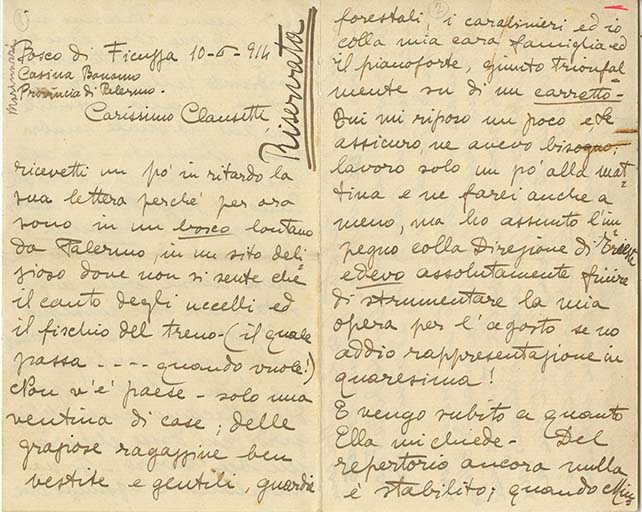 Bosco di Ficuzza 10-6-914
Casina Bonomo
Provincia di Palermo.
Riservata
Carissimo Clausetti
ricevetti un pò in ritardo la
sua lettera perchè per ora
sono in un bosco lontano
da Palermo, in un sito deli=
zioso dove non si sente che
il canto degli uccelli ed
il fischio del treno - (il quale
passa - - - - quando vuole!)
Non v'è paese - solo una
ventina di case; delle
graziose ragazzine ben
vestite e gentili, guardie
forestali, i carabinieri ed io
colla mia cara famiglia ed
il pianoforte, giunto trionfal
mente su di un carretto -
Qui mi riposo un poco e, Le
assicuro, ne avevo bisogno;
lavoro solo un pò alla mat=
tina e ne farei anche a
meno, ma ho assunto l'im=
pegno colla Direzione di
e devo assolutamente finire
di strumentare la mia
opera per l'agosto se no
addio rappresentazione in
quaresima!
E vengo subito a quanto
Ella mi chiede - Del
repertorio ancora nulla
è stabilito; quando